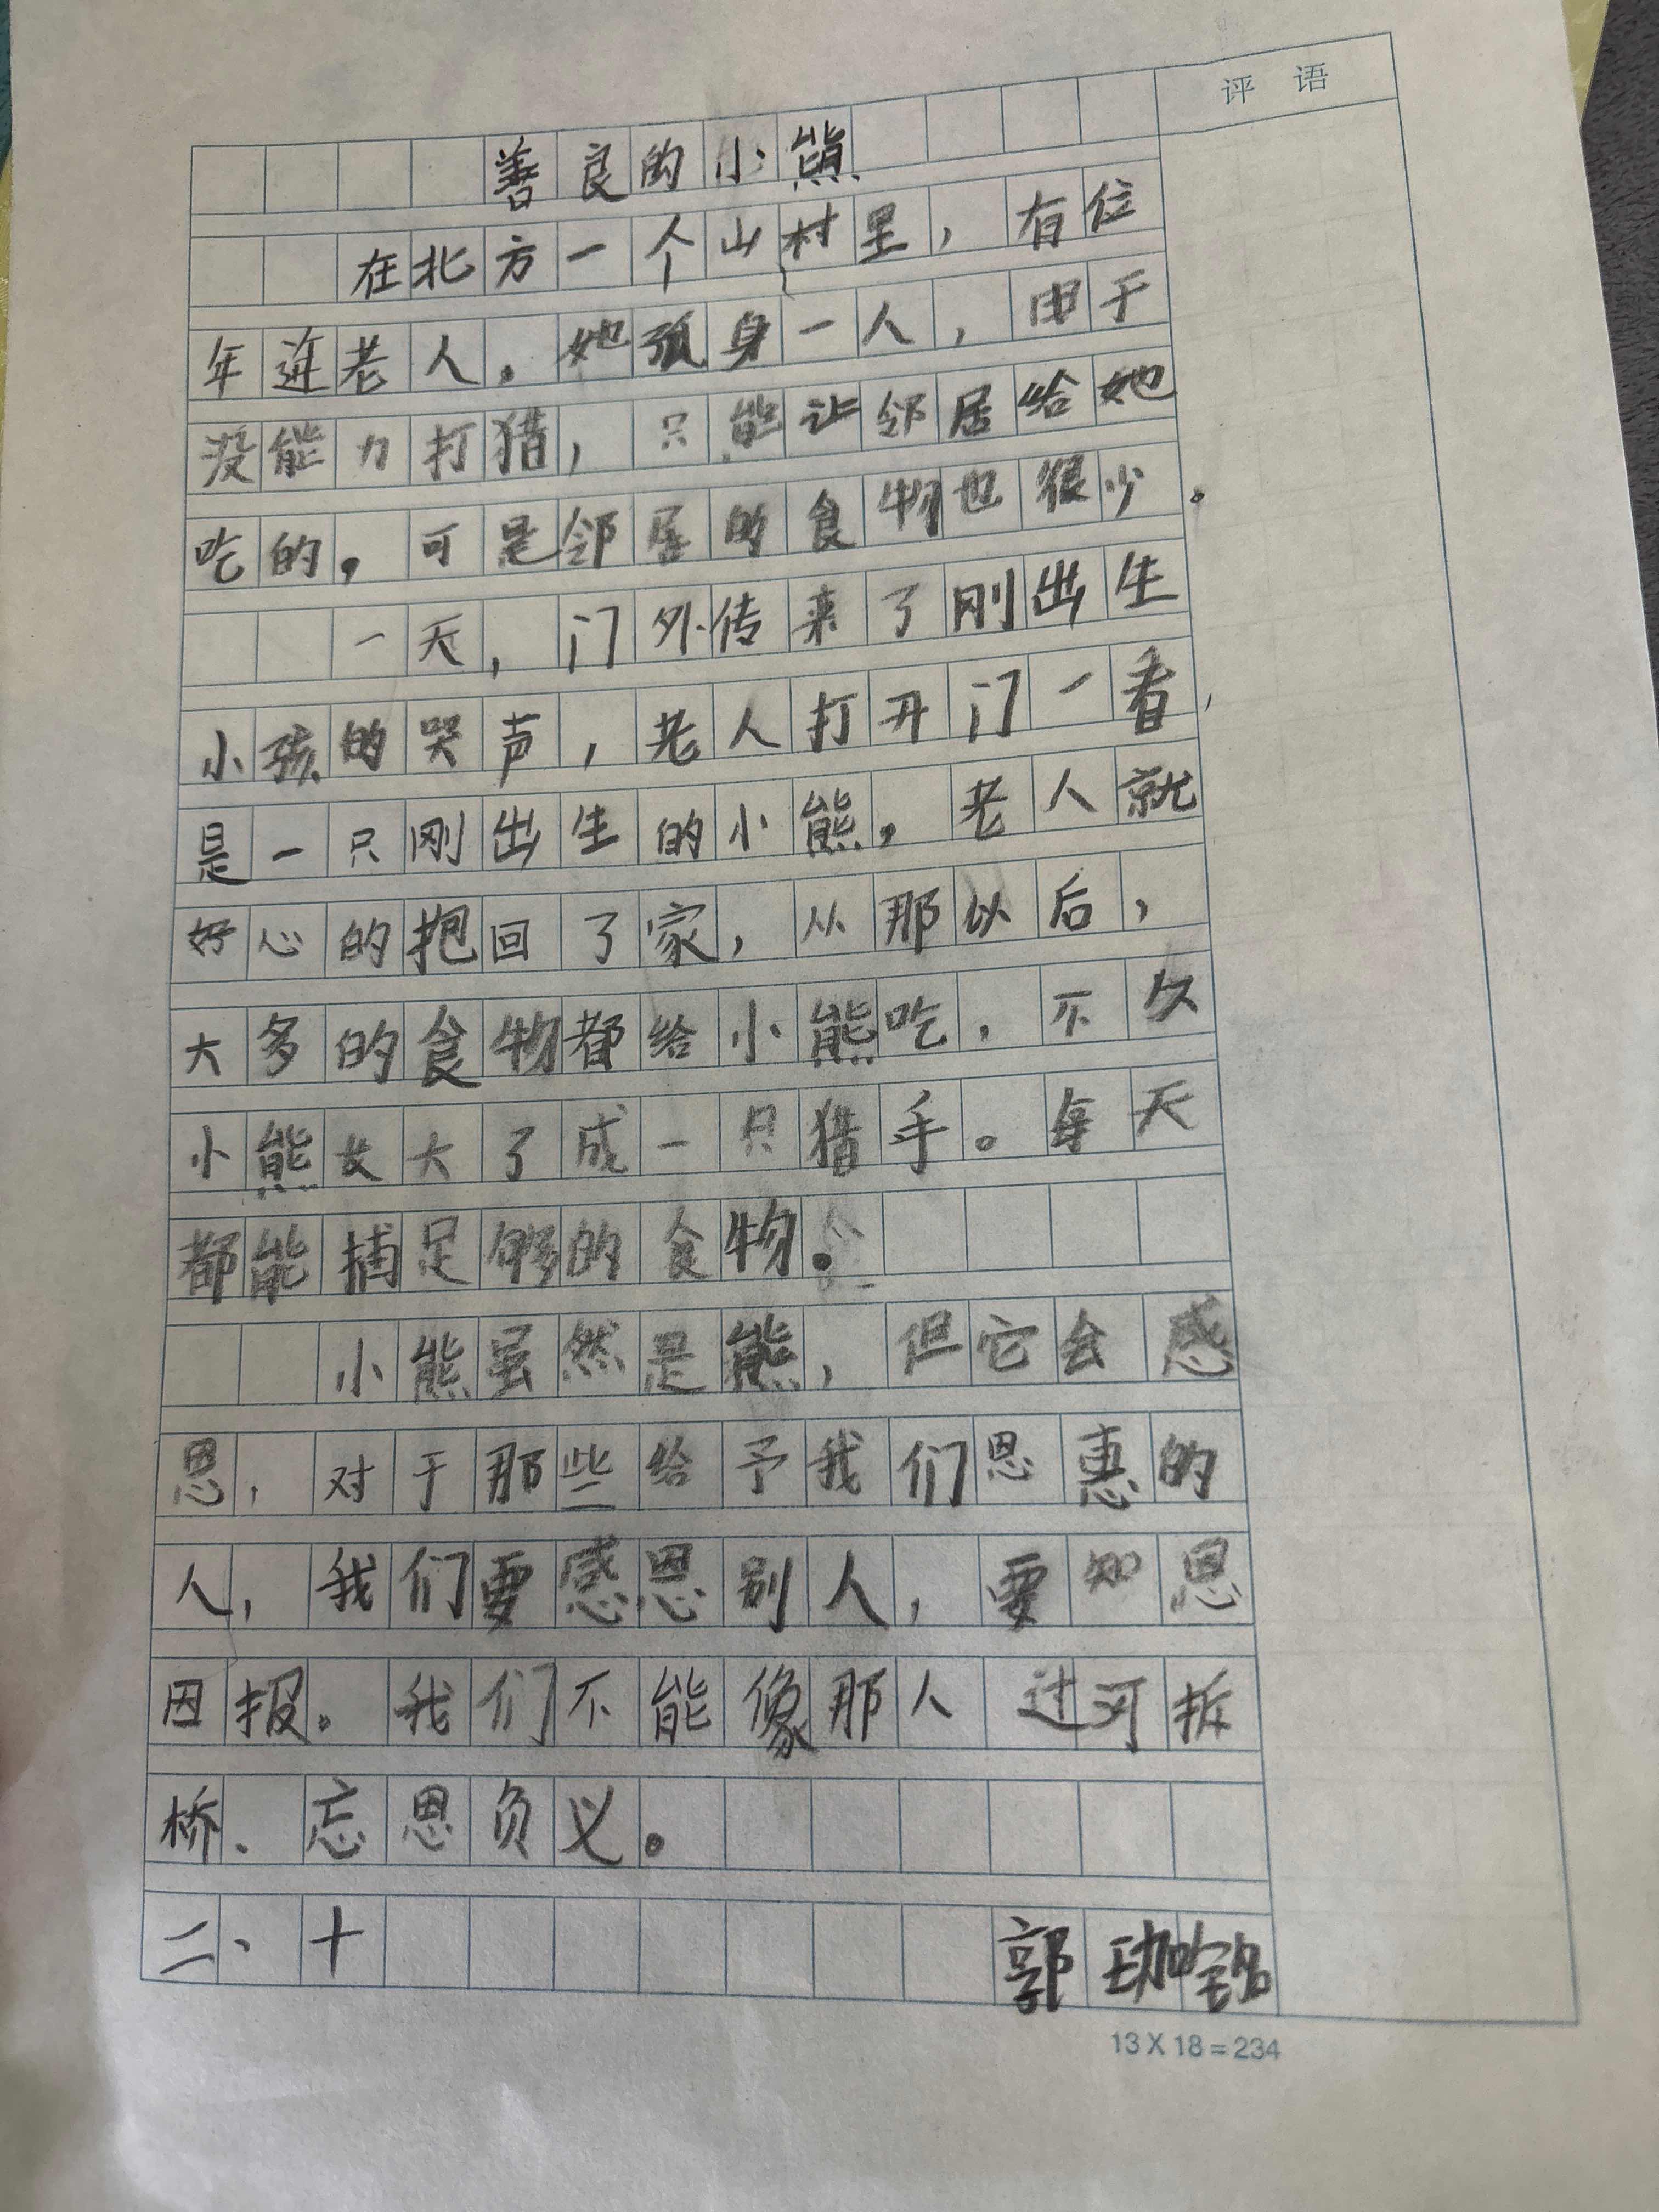 评语
善良的小熊
在北方一个山村里，有位
年迈老人。她孤身一人，由于
没能力打猎，只能让邻居给她
吃的，可是邻居的食物也很少。
一天，门外传来了刚出生
小孩的哭声，老人打开门一看，
是一只刚出生的小熊，老人就
好心的抱回了家，从那以后，
大多的食物都给小熊吃，不久
小熊女大了成一只猎手。每天
都能捕足够的食物。
小熊虽然是熊，但它会感
恩，对于那些给予我们恩惠的
人，我们要感恩别人，要知恩
因报。我们不能像那人过河拆
桥、忘恩负义。
二、十 郭珈铭
13X18=234